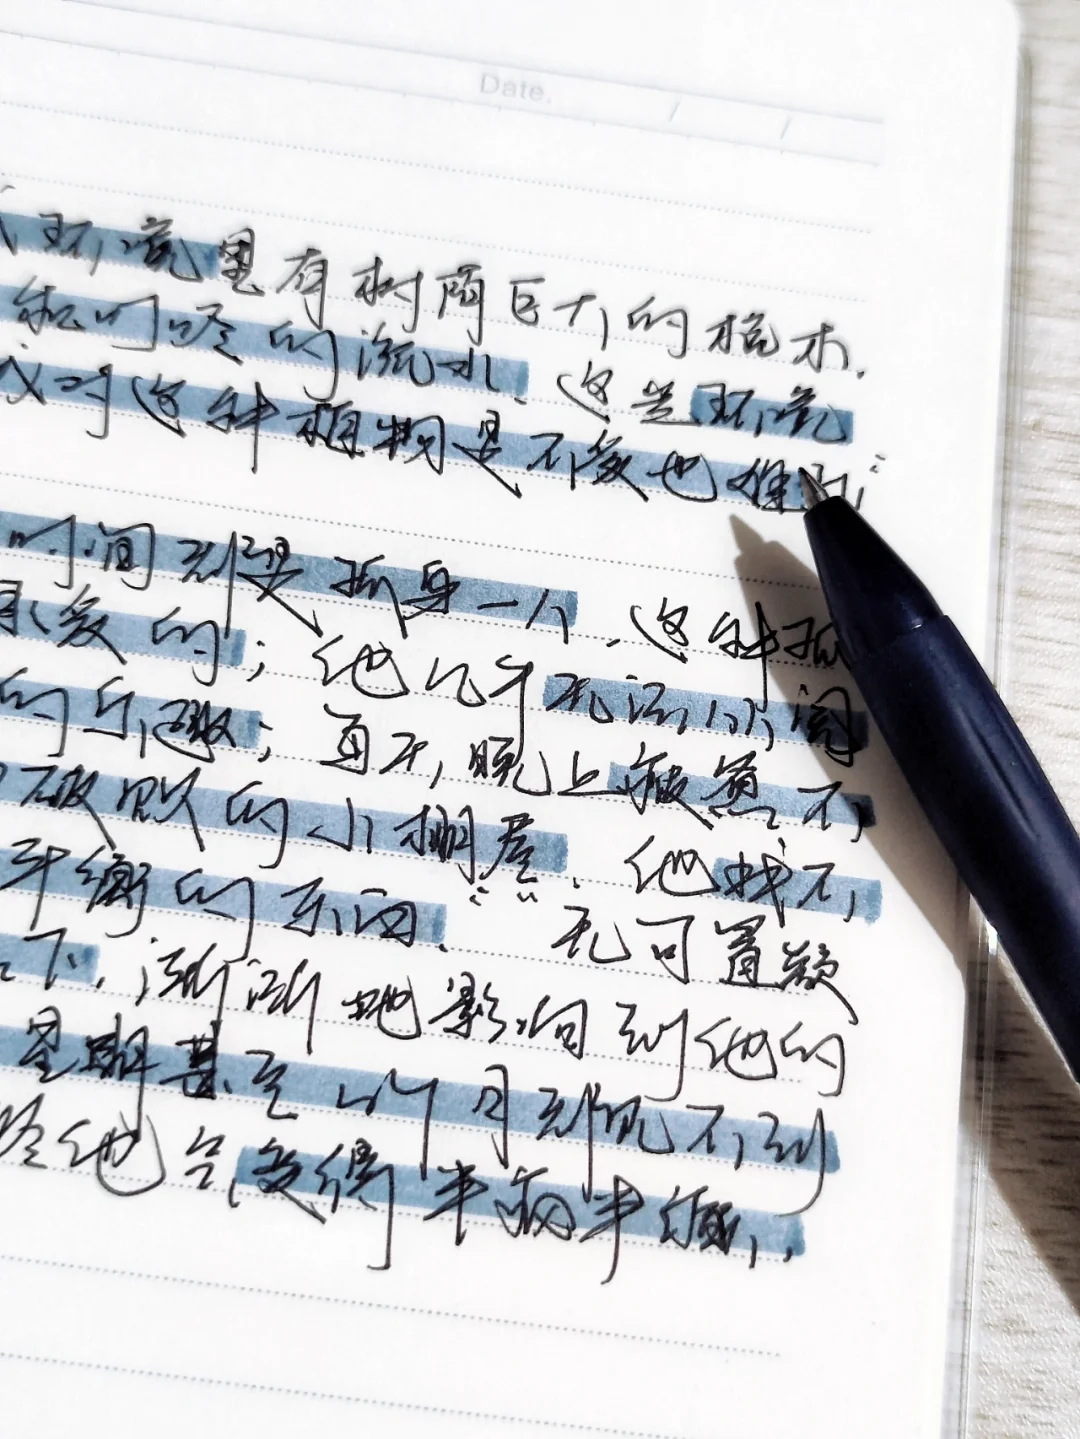 Date. / /
环境里有树荫巨大的橡木,
和叮咚的流水、这些环境
对这种植物是不够也难
时间都是孤身一人、这种孤
忍受的;他几乎无法从阅
的乐趣;每天,晚上被迫不
破败的小棚屋、他找不
平衡的东西、无可置疑
下,渐渐地影响到他的
星期甚至几个月都见不到
终他会变得半疯半傻,